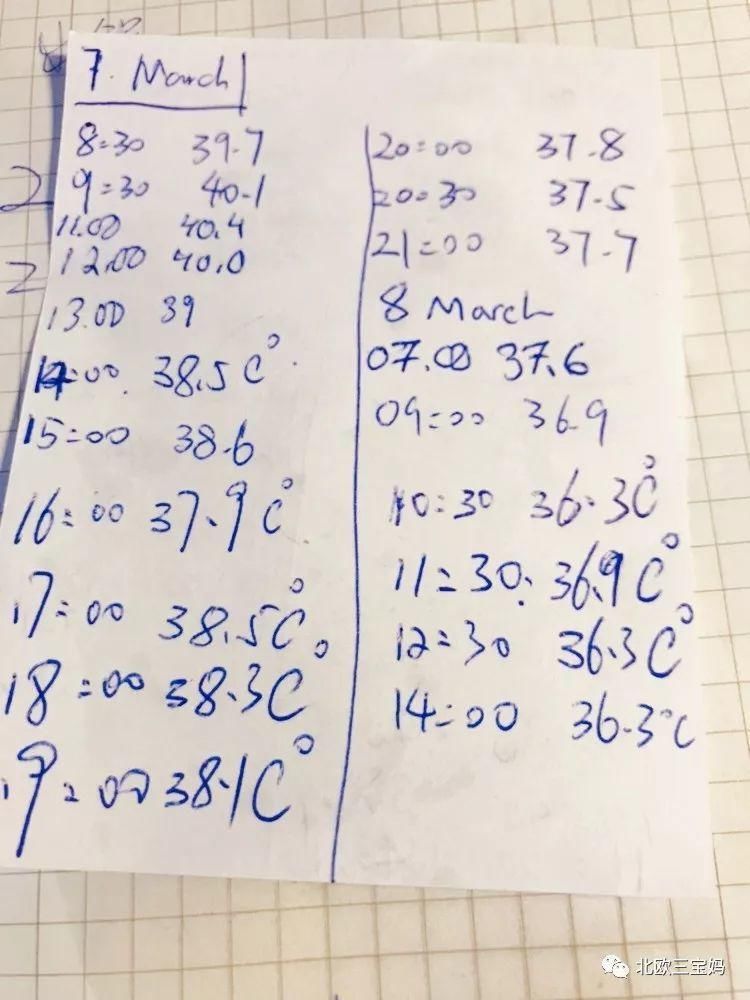 7. March
8:30 39.7
9:30 40.1
11.00 40.4
12.00 40.0
13.00 39
14:00 38.5 C°
15:00 38.6
16:00 37.9 C°
17:00 38.5 C°
18:00 38.3 C°
19:00 38.1 C°
20:00 37.8
20:30 37.5
21:00 37.7
8 March
07.00 37.6
09:00 36.9
10:30 36.3 C°
11:30. 36.9 C°
12:30 36.3 C°
14:00 36.3 °C
2
2
北欧三宝妈